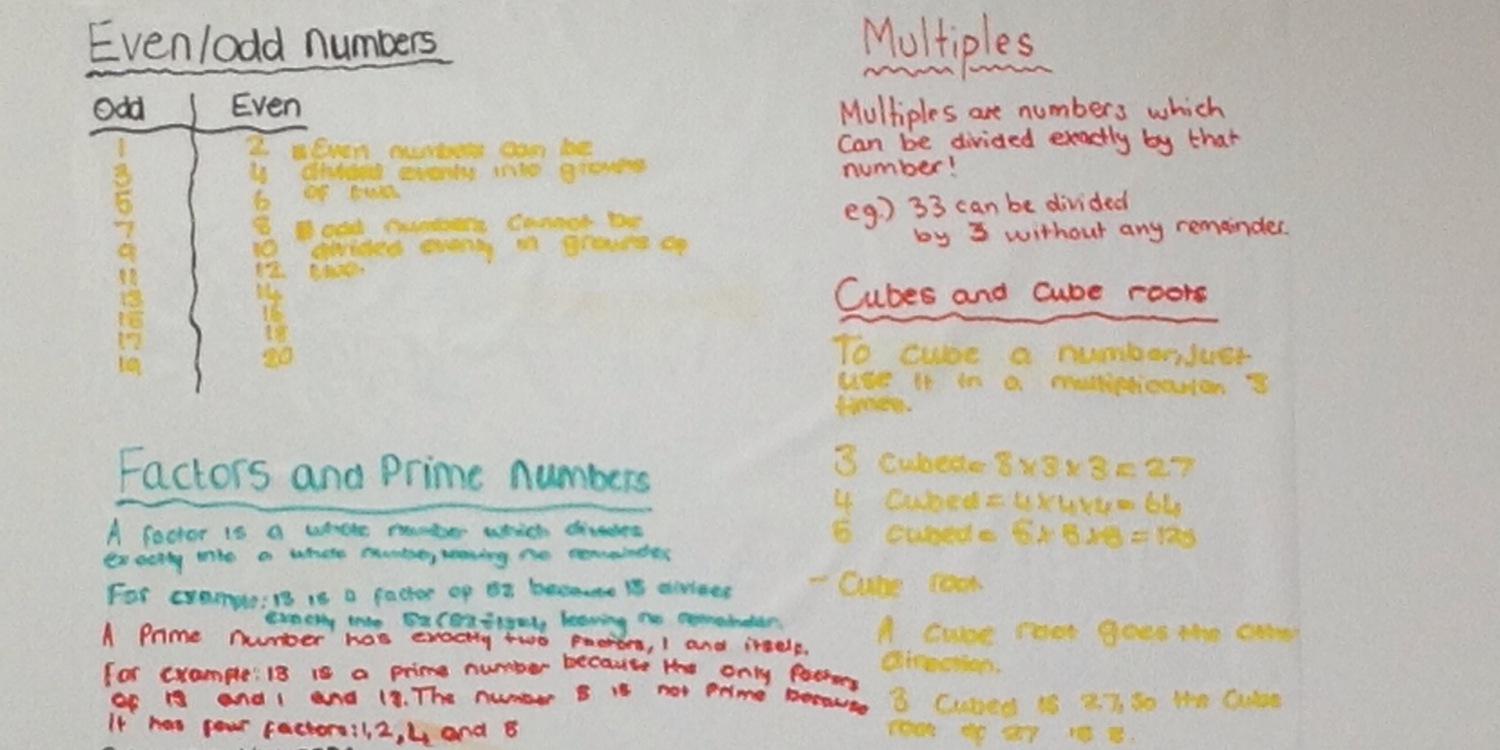 Even/odd numbers
Odd Even
1 2
3 4
5 6
7 8
9 10
11 12
13 14
15 16
17 18
19 20
Even numbers can be
divided evenly into groups
of two.
odd numbers cannot be
divided evenly in groups of
two.
Factors and Prime numbers
A factor is a whole number which divides
exactly into a whole number, leaving no remainder.
For example: 13 is a factor of 52 because 13 divides
exactly into 52 (52÷13=4, leaving no remainder.
A Prime number has exactly two factors, 1 and itself.
For example: 13 is a prime number because the only factors
of 13 and 1 and 13. The number 8 is not Prime because
it has four factors: 1, 2, 4 and 8
Multiples
Multiples are numbers which
can be divided exactly by that
number!
eg.) 33 can be divided
by 3 without any remainder.
Cubes and Cube roots
To cube a number, Just
use it in a multiplication 3
times.
3 Cubed = 3x3x3 = 27
4 Cubed = 4x4x4 = 64
5 cubed = 5x5x5 = 125
- Cube root
A cube root goes the other
direction.
3 Cubed is 27, so the Cube
root of 27 is 3.